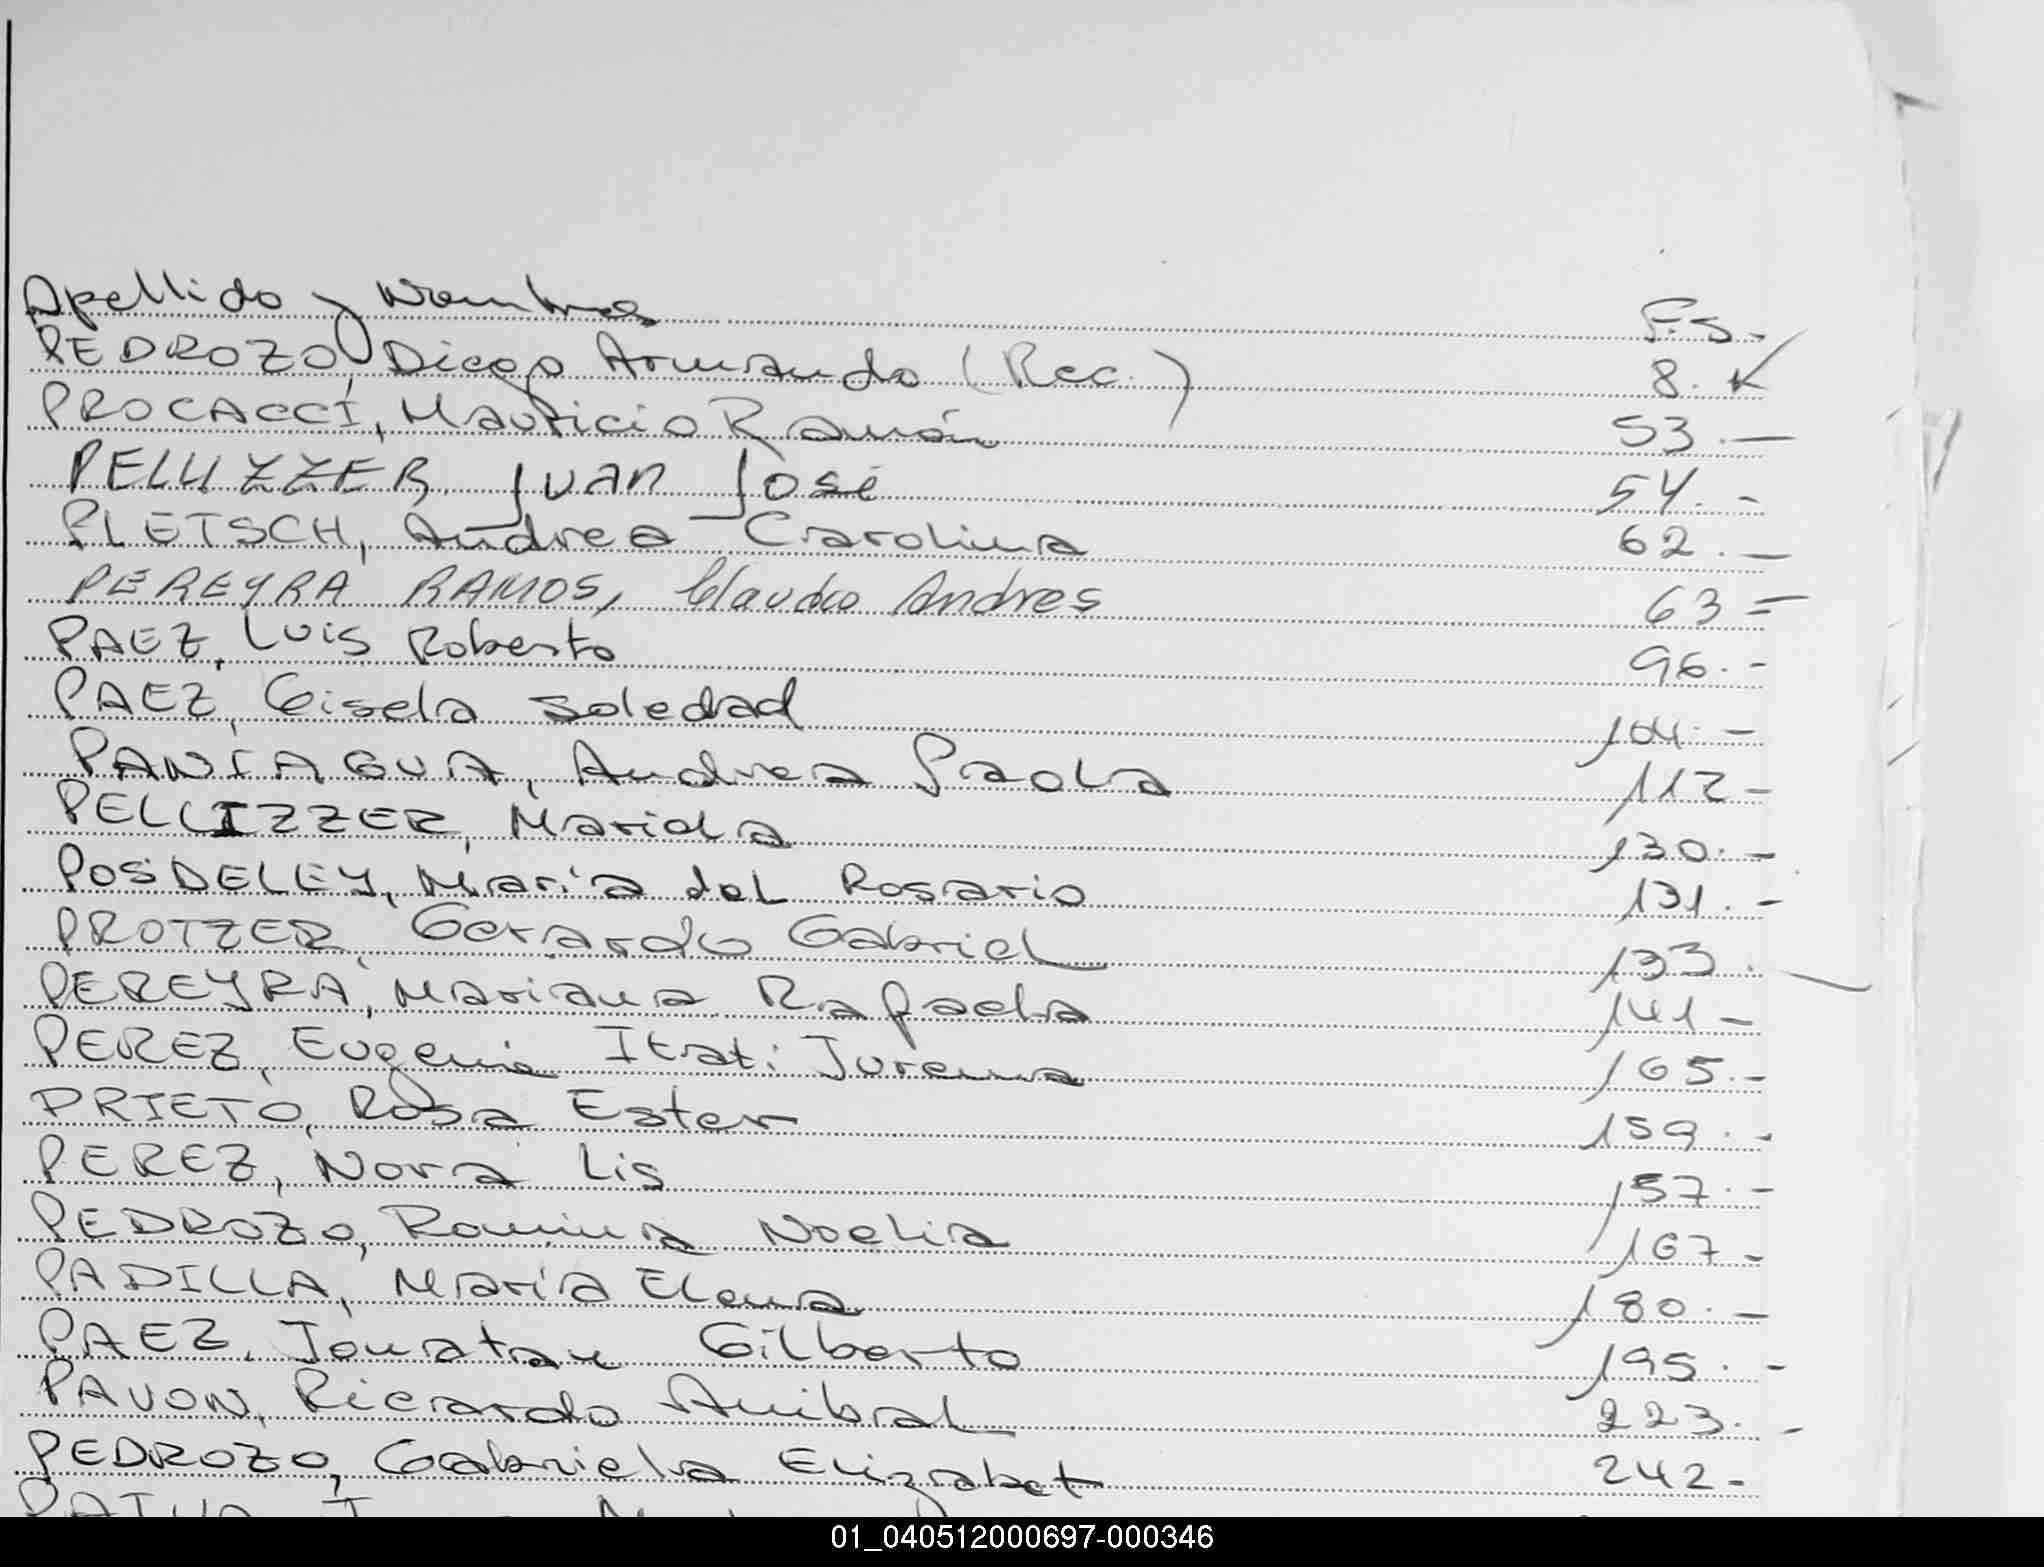 Apellido y Nombres Fs.
PEDROZO, Diego Armando (Rec.) 8.
PROCACCI, Mauricio Ramón 53.-
PELLIZZER, Juan José 54.-
PLETSCH, Andrea Carolina 62.-
PEREYRA RAMOS, Claudio Andres 63=
PAEZ, Luis Roberto 96.-
PAEZ, Gisela Soledad 104.-
PANIAGUA, Andrea Paola 112-
PELLIZZER, Mariela 130.-
POSDELEY, María del Rosario 131.-
PROTZER, Gerardo Gabriel 133.
PEREYRA, Mariana Rafaela 141-
PEREZ, Eugenia Itati Jurema 165.-
PRIETO, Rosa Ester 159.-
PEREZ, Nora Lis 157.-
PEDROZO, Romina Noelia 167-
PADILLA, María Elena 180.-
PAEZ, Jonatan Gilberto 195.-
PAVON, Ricardo Anibal 223.-
PEDROZO, Gabriela Elizabet 242-
01_040512000697-000346